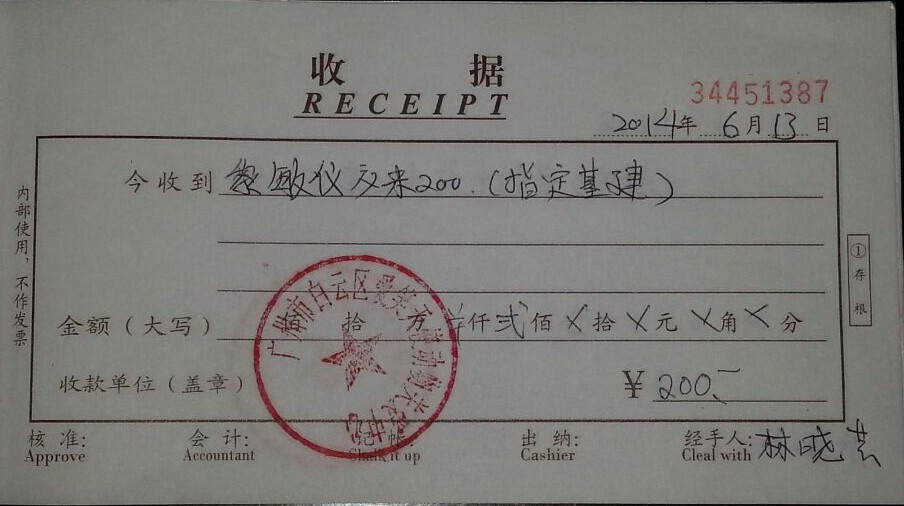 收 据
RECEIPT
34451387
2014年 6月 13日
今收到 黎敏仪交来200.(指定基建)
金额(大写) 佰 拾 万 仟 弍 佰 ㄨ 拾 ㄨ 元 ㄨ 角 ㄨ 分
收款单位(盖章) ¥ 200.-
核 准: 会 计: 记 帐: 出 纳: 经手人: 林晓
Approve Accountant Chalk it up Cashier Cleal with
内部使用,不作发票
①存根
广州市白云区 中心